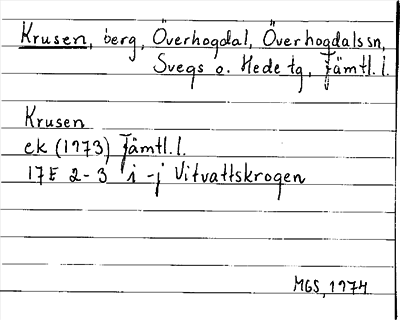 Krusen, berg, Överhogdal, Överhogdalssn,
Svegs o. Hede tg, Jämtl. l.
Krusen
ek (1973) Jämtl. l.
17E 2-3 i-j Vitvattskrogen
MGS, 1974